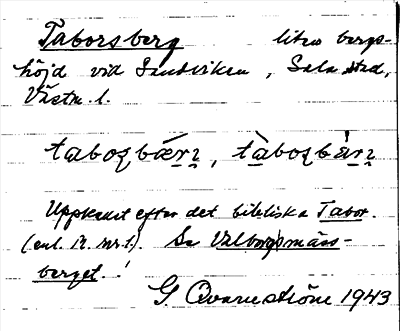 Taborsberg liten bergs-
höjd vid Sandviken, Sala stad,
Västm. l.
Uppkallat efter det bibliska Tabor.
(enl. M. nr. 1). Se Valborgsmäss-
berget.!
G. Qvarnström 1943